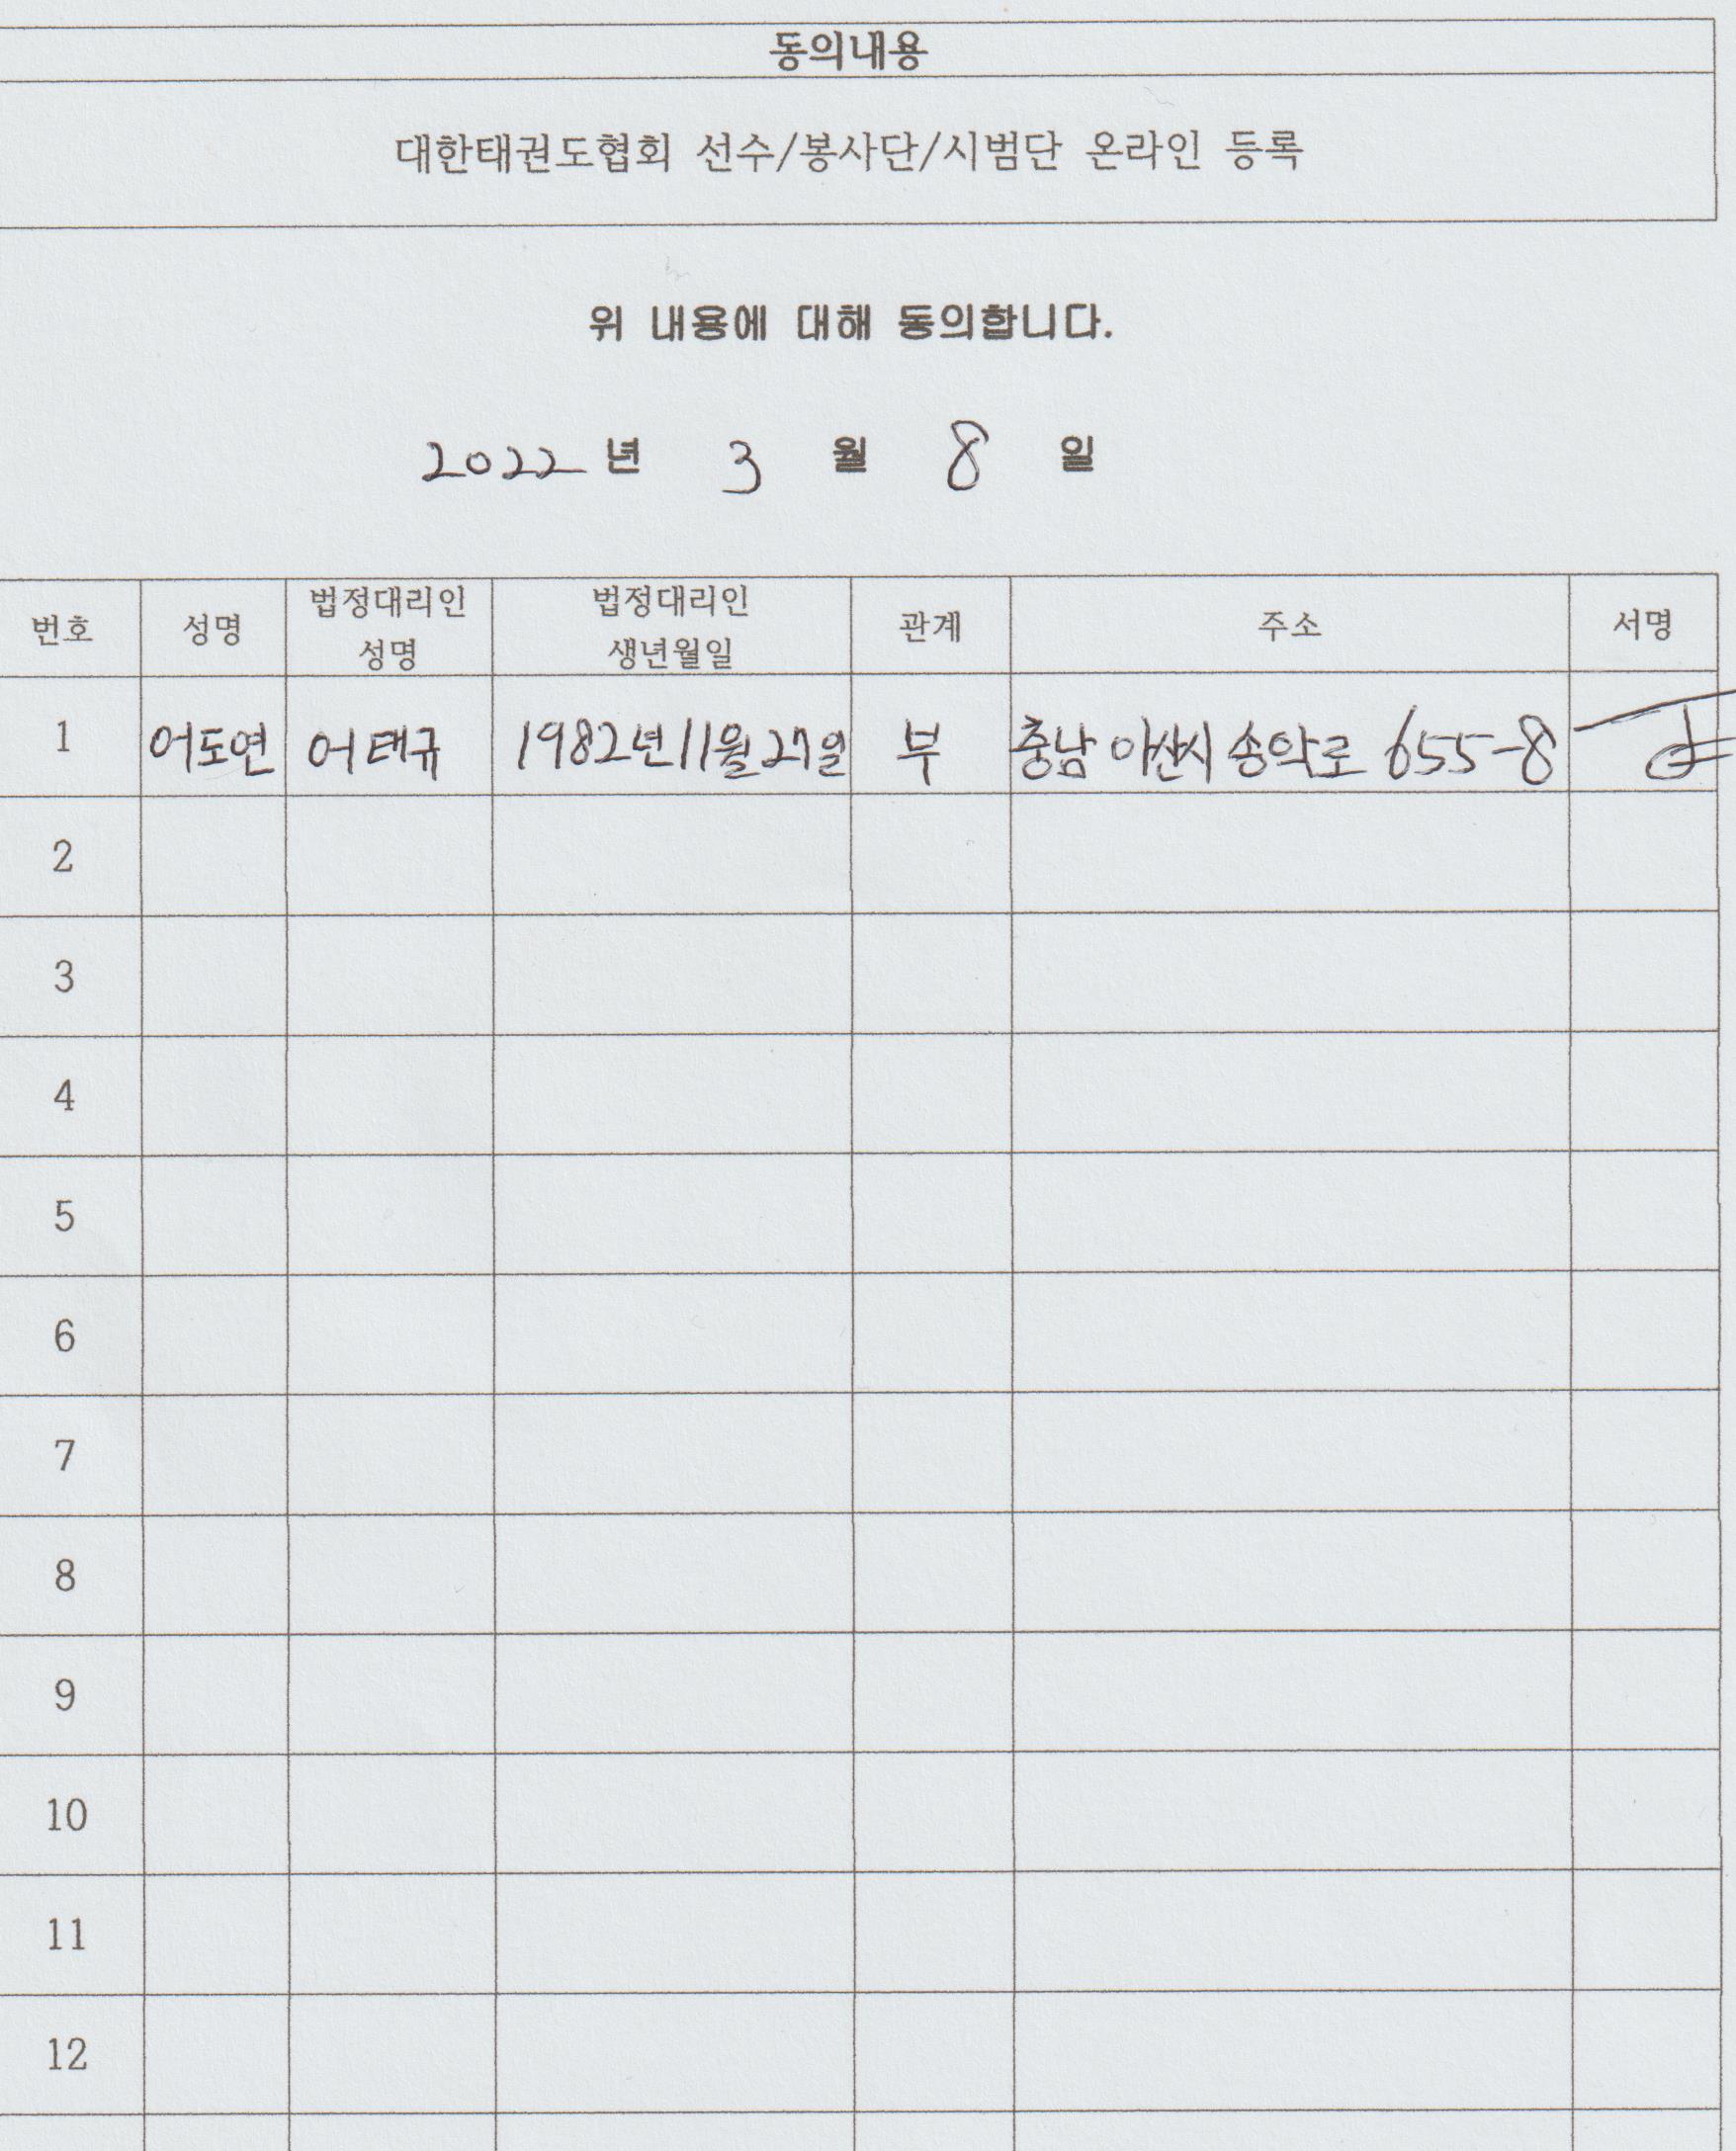 동의내용
대한태권도협회 선수/봉사단/시범단 온라인 등록
위 내용에 대해 동의합니다.
2022 년 3 월 8 일
번호 성명 법정대리인 성명 법정대리인 생년월일 관계 주소 서명
1 어도연 어태규 1982년11월27일 부 충남 아산시 송악로 655-8
2
3
4
5
6
7
8
9
10
11
12